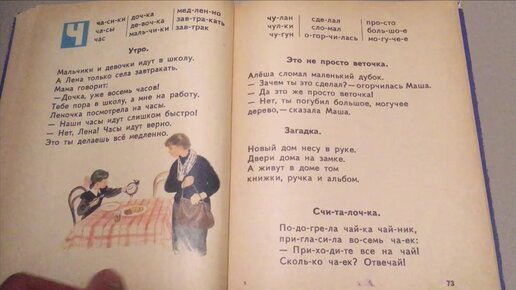 Ч
ча-си-ки
ча-сы
час
доч-ка
де-воч-ка
маль-чи-ки
мед-лен-но
зав-тра-кать
зав-трак
Утро.
Мальчики и девочки идут в школу.
А Лена только села завтракать.
Мама говорит:
— Дочка, уже восемь часов!
Тебе пора в школу, а мне на работу.
Леночка посмотрела на часы.
— Наши часы идут слишком быстро!
— Нет, Лена! Часы идут верно.
Это ты делаешь всё медленно.
чу-лан
чул-ки
чу-гун
сде-лал
сло-мал
о-гор-чи-лась
про-сто
боль-шо-е
мо-гу-че-е
Это не просто веточка.
Алёша сломал маленький дубок.
— Зачем ты это сделал? — огорчилась Маша.
— Да это же просто веточка!
— Нет, ты погубил большое, могучее
дерево, — сказала Маша.
Загадка.
Новый дом несу в руке.
Двери дома на замке.
А живут в доме том
книжки, ручка и альбом.
Счи-та-лоч-ка.
По-до-гре-ла чай-ка чай-ник,
при-гла-си-ла во-семь ча-ек:
— При-хо-ди-те все на чай!
Сколь-ко ча-ек? Отвечай!
73